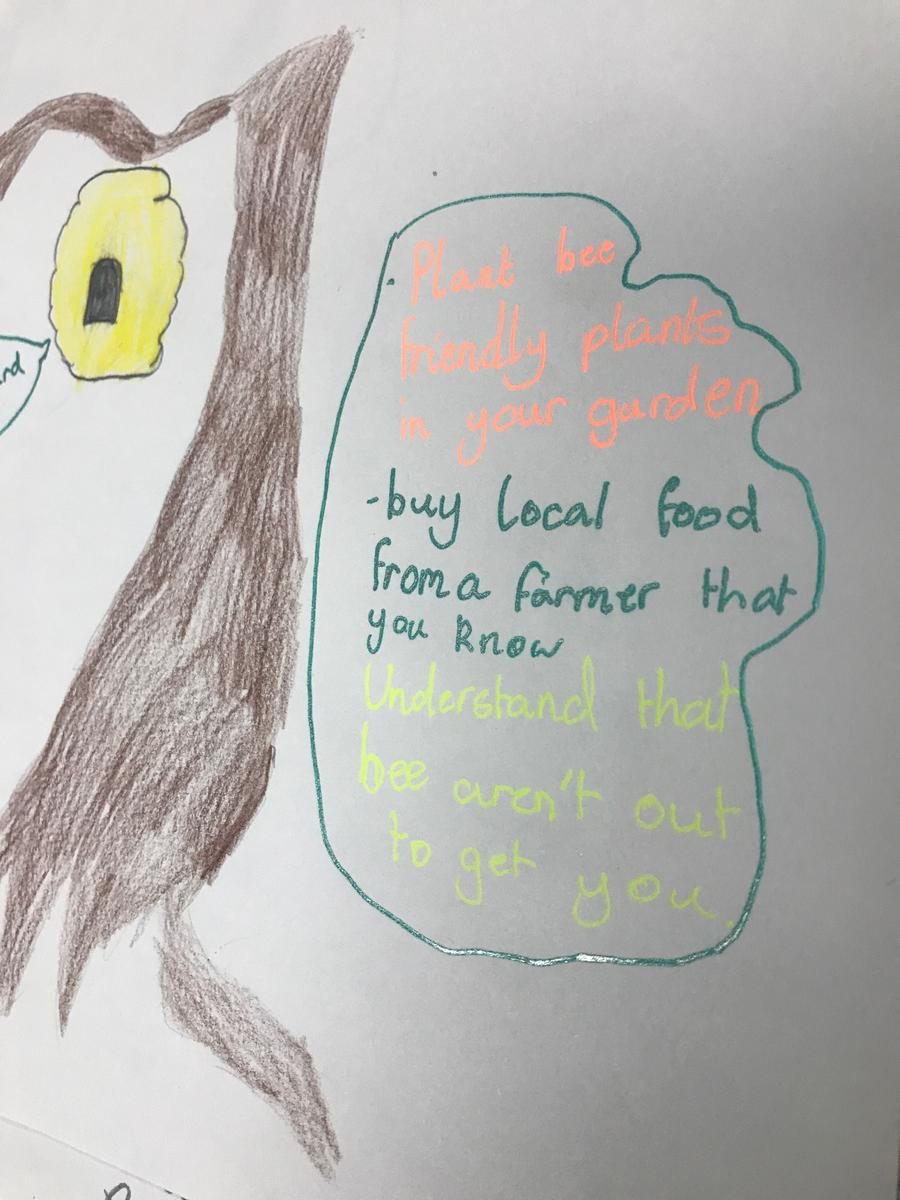 . Plant bee
friendly plants
in your garden
-buy local food
from a farmer that
you know
Understand that
bee aren't out
to get you.